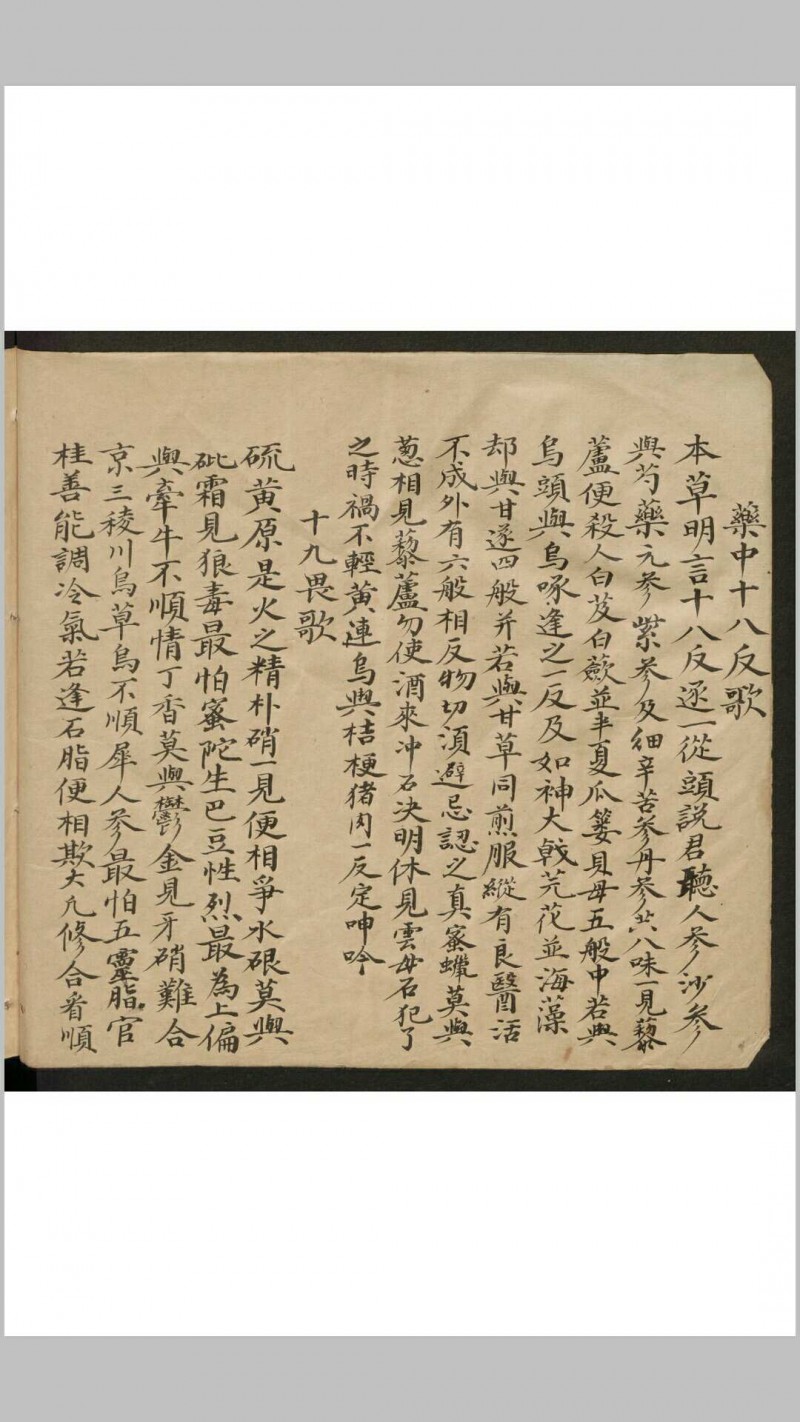 藥中十八反歌
本草明言十八反逐一從頭説君聽人参沙参
與芍藥元参紫参及细辛苦参丹参共八味一見藜
蘆便殺人白芨白蘞並半夏瓜蔞貝母五般中若與
烏頭與烏啄逢之一反及如神大戟芫花並海藻
却與甘遂四般并若與甘草同煎服縱有良醫活
不成外有六般相反物切須避忌認之真蜜蠟莫與
葱相見藜蘆勿使酒來冲石决明休見雲母石犯了
之時禍不輕黄連烏與桔梗猪肉一反定呻吟
十九畏歌
硫黄原是火之精朴硝一見便相爭水硍莫與
砒霜見狼毒最怕蜜陀生巴豆性烈最為上偏
與牽牛不順情丁香莫與鬱金見牙硝難合
京三稜川烏草烏不順犀人参最怕五靈脂官
桂善能調冷氣若逢石脂便相欺大凡修合看順